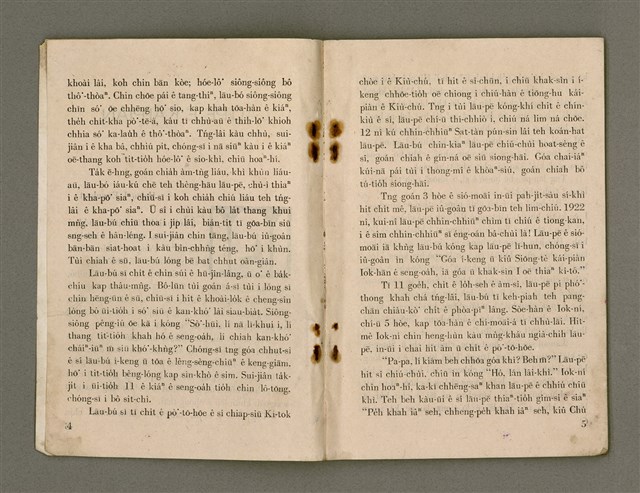 khoài lâi, koh chin bān kòe; hóe-lô͘ siông-siông bô
thô͘-thòaⁿ. Chin chōe pái ê tang-thiⁿ, lāu-bó siông-siông
chin só͘ ōe chhēng hō͘ sio, kap khah tōa-hàn ê kiáⁿ,
thèh chit-kha pò͘-tē-á, káu tī chhù-āu ê thih-lō͘ khioh
chhia só͘ ka-lauh ê thô͘-thòaⁿ. Tńg-lâi káu chhù, sui-
jiân i ê kha bâ, chhiú pit, chóng-sī i nā siūⁿ káu i ê kiáⁿ
oē-thang koh tit-tio̍h hóe-lô͘ ê sio-khì, chiū hoaⁿ-hí.
Ta̍k ê-hng, goán chiah àm-tǹg liáu, khì khùn liáu-
aū, lāu-bó iáu-kú chē teh théng-hāu lāu-pē, chū-i thiaⁿ
i ê kha-pō͘ siaⁿ, chiū-sī i koh chiah chiú liáu teh tńg-
lâi ê kha-pō͘ siaⁿ. Ū sî i chúi káu bô la̍t thang khui
mn̂g, lāu-bó chiū thoa i ji̍p lâi, biàn-tit tī góa-bīn siū
sng-seh ê hân-léng. I sui-jiân chin tāng, lāu-bó iû-goân
bān-bān siat-hoat i káu bîn-chhn̂g téng, hō͘ i khùn.
Tùi chiah ê sū, lāu-bó lóng bē bat chhut oàn-giân.
Lāu-bó sī chi̍t ê chin súi ê hū-jîn-lâng, ū o͘ ê ba̍k-
chiu kap thâu-mn̂g. Bô-lūn tùi goán á-sī tùi i lóng sī
chin bêng-ūn ê sū, chiū-sī i hit ê khoài-lo̍k ê cheng-sîn
lóng bô ūi-tio̍h i só͘ siū ê kan-khó͘ lâi siau-bia̍t. Siông-
siông pêng-iú oe kā i kóng "Sò͘-hūi, lí nā lī-khui i, lí
thang tit-tio̍h khah hó ê seng-oa̍h, lí chiah kan-khó͘
cháiⁿ-iūⁿ m̄ siū khó͘-khǹg?" Chóng-sī tng góa chhut-sì
ê sî lāu-bó í-keng ū tōa ê lêng-sèng-chiūⁿ ê keng-giām,
hō͘ i tit-tio̍h bêng-lóng kap sìn-khò ê sim. Sui-jiân ta̍k-
ji̍t i ūi-tio̍h 11 ê kiáⁿ ê seng-oa̍h tio̍h chin lô-tōng,
chóng-sī i bô sit-chì.
Lāu-bó sī tī chi̍t ê pò͘-tō-hōe ê sî chiap-siū Ki-tok
54
chòe i ê Kiù-chú. tī hit ê sî-chūn, i chiū khak-sìn i í-
keng chhōe-tio̍h oē chiong i chiū-hàn ê tiōng-hu kái-
piàn ê Kiù-chú. Tng i tùi lāu-pē kóng-khí chit ê chin-
kiù ê sî, lāu-pē chí-ū thi-chhiò i, chiú ná lim ná chōe.
12 nî kú chhin-chhiūⁿ Sat-tàn pún-sin lâi teh koán-hat
lāu-pē. Lāu-bú chin-kiaⁿ lāu-pē chiú-chùi hoat-sèng ê
sî, goán chiah ê gín-ná oē siū siong-hāi. Góa chai-iáⁿ
kúi-nā pái tùi i thong-mî ê khòaⁿ-siú, goán chiah bô
tú-tio̍h siong-hāi.
Tng goán 3 hòe ê siō-moāi in-ūi pah-ji̍t-sàu sí-khì
hit chi̍t mê, lāu-pē iû-goân tī góa-bīn teh lim-chiú. 1922
nî, kui-nî lāu-pē chhin-chhiūⁿ chím tī chiú ê tiong-kan,
i ê sim chhin-chhiūⁿ sī éng-oán bá-chùi lâi! Lāu-pē ê siō-
moāi iā khǹg lāu-bú kóng kap lāu-pē lī-hun, chóng-sī i
iû-goân ìn kóng "Góa í-keng ū kiû Siōng-tè kái-piàn
Iok-hān ê seng-oa̍h, iā góa ū khak-sìn I oē thiaⁿ kî-tó."
Tī 11 goe̍h, chi̍t ê lo̍h-seh ê àm-sî, lāu-pē pí phó͘-
thong khah chá tńg-lâi, lāu-bú tī keh-piah teh pang-
chān chiàu-kò͘ chi̍t ê phòa-pīⁿ lâng. Sòe-hàn ê Iok-ni,
chí-ū 5 hòe, kap tōa-hàn ê chí-moāi-á tī chhù-lāi. Hit-
mê Iok-ni chin heng-hùn káu mn̂g-kháu ngiâ-chih lāu-
pē, in-ūi i chai hit àm ū chi̍t ê pò͘-tō-hōe.
"Pa-pa, lí kiám beh chhōa góa khì? Beh m̄?" Lāu-pē
hit sî chiú chùi, chiú ìn kóng "Hó, lán lâi-khì." Iok-ni
chin hoaⁿ-hí, ka-kī chhēng-saⁿ khan lāu-pē ê chhiú chiū
khì. Teh beh káu-ūi ê sî lāu-pē thiaⁿ-tio̍h gîm-si ê siaⁿ
"Pe̍h khah iâⁿ seh, chheng-pe̍h khah iâⁿ seh, kiû Chú
5